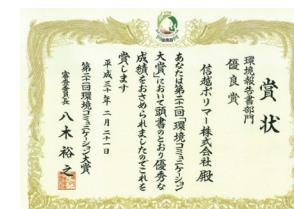 賞状
環境報告書部門
優良賞
信越ポリマー株式会社 殿
あなたは第二十一回「環境コミュニケーション
大賞」において頭書のとおり優秀な
成績をおさめられましたのでこれを
賞します
平成三十年二月二十一日
第二十一回環境コミュニケーション大賞
審査委員長 八木裕之